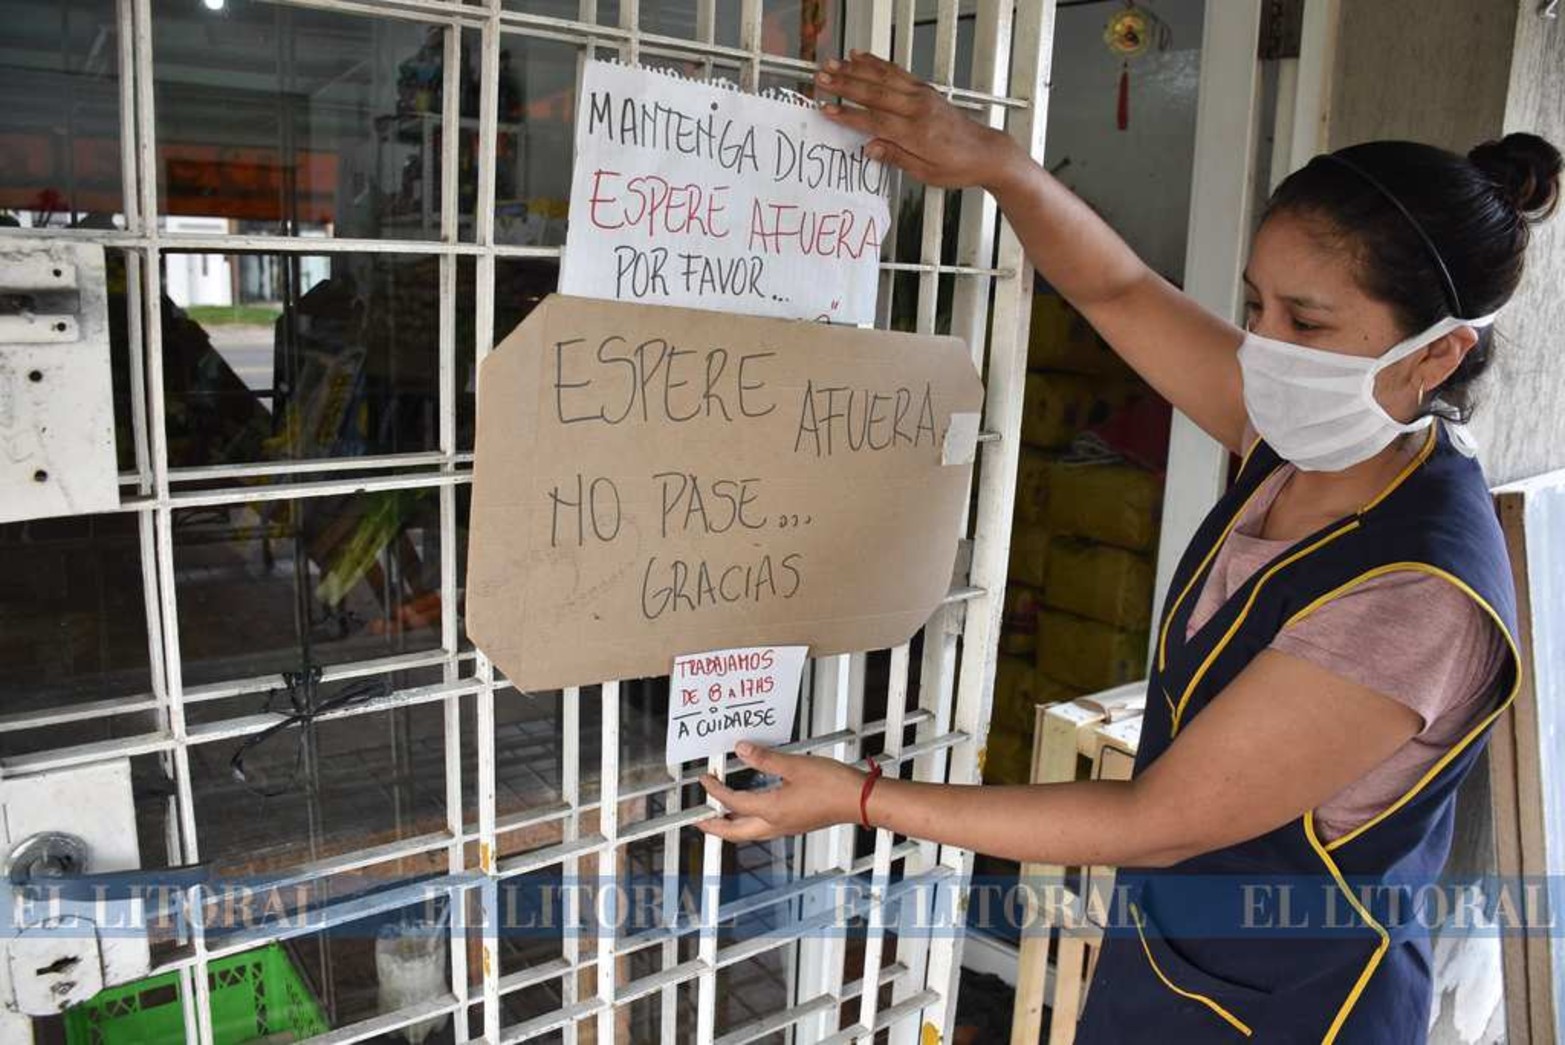 MANTENGA DISTANCI
ESPERE AFUERA
POR FAVOR...
ESPERE AFUERA.
NO PASE...
GRACIAS
TRABAJAMOS
DE 8 A 17HS
A CUIDARSE
EL LITORAL EL LITORAL EL LITORAL EL LITORAL